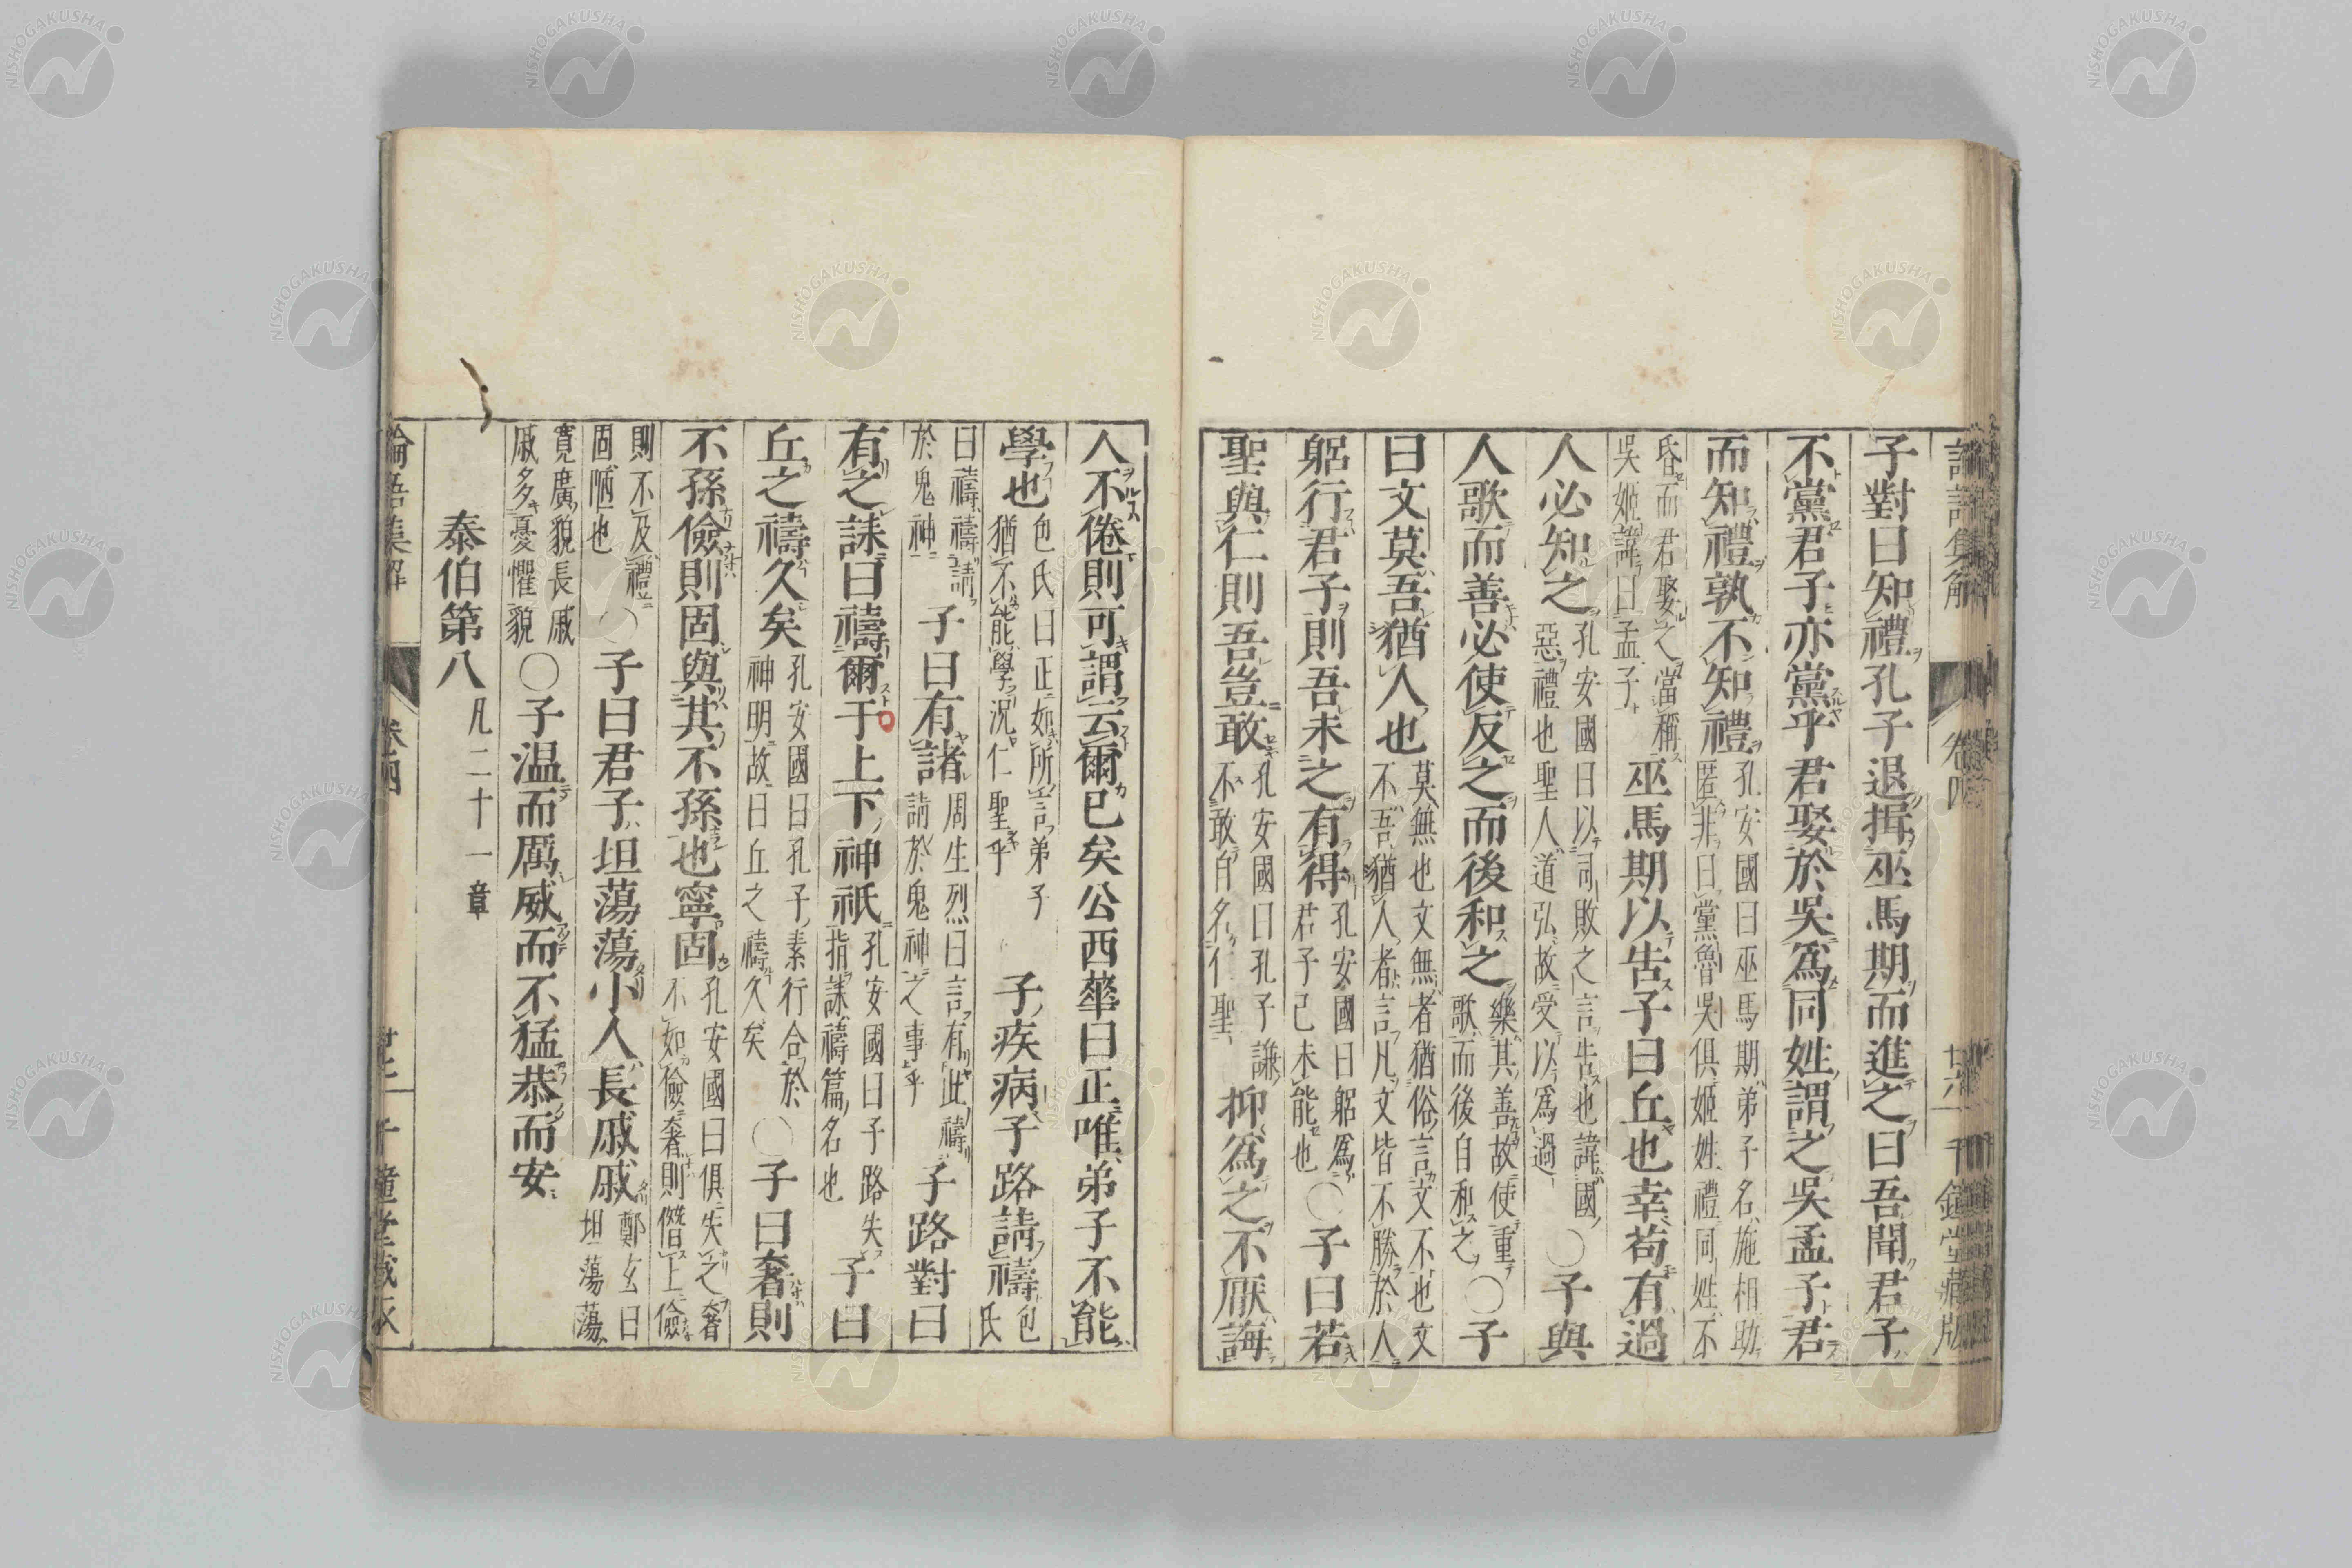 子對曰知禮孔子退揖巫馬期而進之曰吾聞君子
不黨君子亦黨乎君娶於吳爲同姓謂之吳孟子君
而知禮孰不知禮孔安國曰巫馬期弟子名施相助匿非曰黨魯吳俱姬姓禮同姓不
昏而君娶之當稱吳姬諱曰孟子巫馬期以告子曰丘也幸苟有過
人必知之孔安國曰以司敗之言告也諱國惡禮也聖人道弘故受以爲過〇子與
人歌而善必使反之而後和之樂其善故使重歌而後自和之〇子
曰文莫吾猶人也莫無也文無者猶俗言文不也文不吾猶人者言凡文皆不勝於人
躬行君子則吾未之有得孔安國曰躬爲君子己未能也〇子曰若
聖與仁則吾豈敢孔安國曰孔子謙不敢自名仁聖抑爲之不厭誨
人不倦則可謂云爾已矣公西華曰正唯弟子不能
學也包氏曰正如所言弟子猶不能學況仁聖乎子疾病子路請禱包氏
曰禱禱請於鬼神子曰有諸周生烈曰言有此禱請於鬼神之事乎子路對曰
有之誄曰禱爾于上下神祇孔安國曰子路失指誄禱篇名也子曰
丘之禱久矣孔安國曰孔子素行合於神明故曰丘之禱久矣〇子曰奢則
不孫儉則固與其不孫也寧固孔安國曰俱失之奢不如儉奢則僭上儉
則不及禮固陋也〇子曰君子坦蕩蕩小人長戚戚鄭玄曰坦蕩蕩
寬廣貌長戚戚多憂懼貌〇子温而厲威而不猛恭而安
泰伯第八凡二十一章
論語集解 卷四